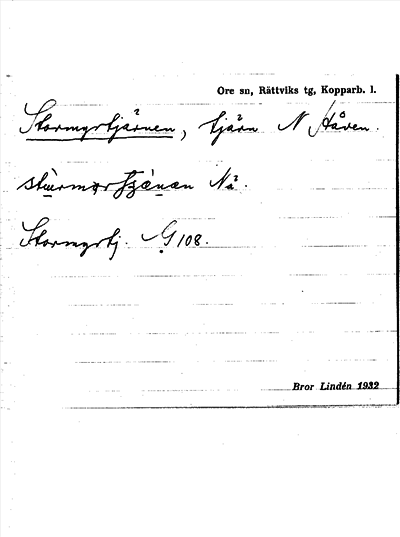 Ore sn, Rättviks tg, Kopparb. l.
Stormyrtjärnen, tjärn N Håven.
Stormyrtj. G 108.
Bror Lindén 1932